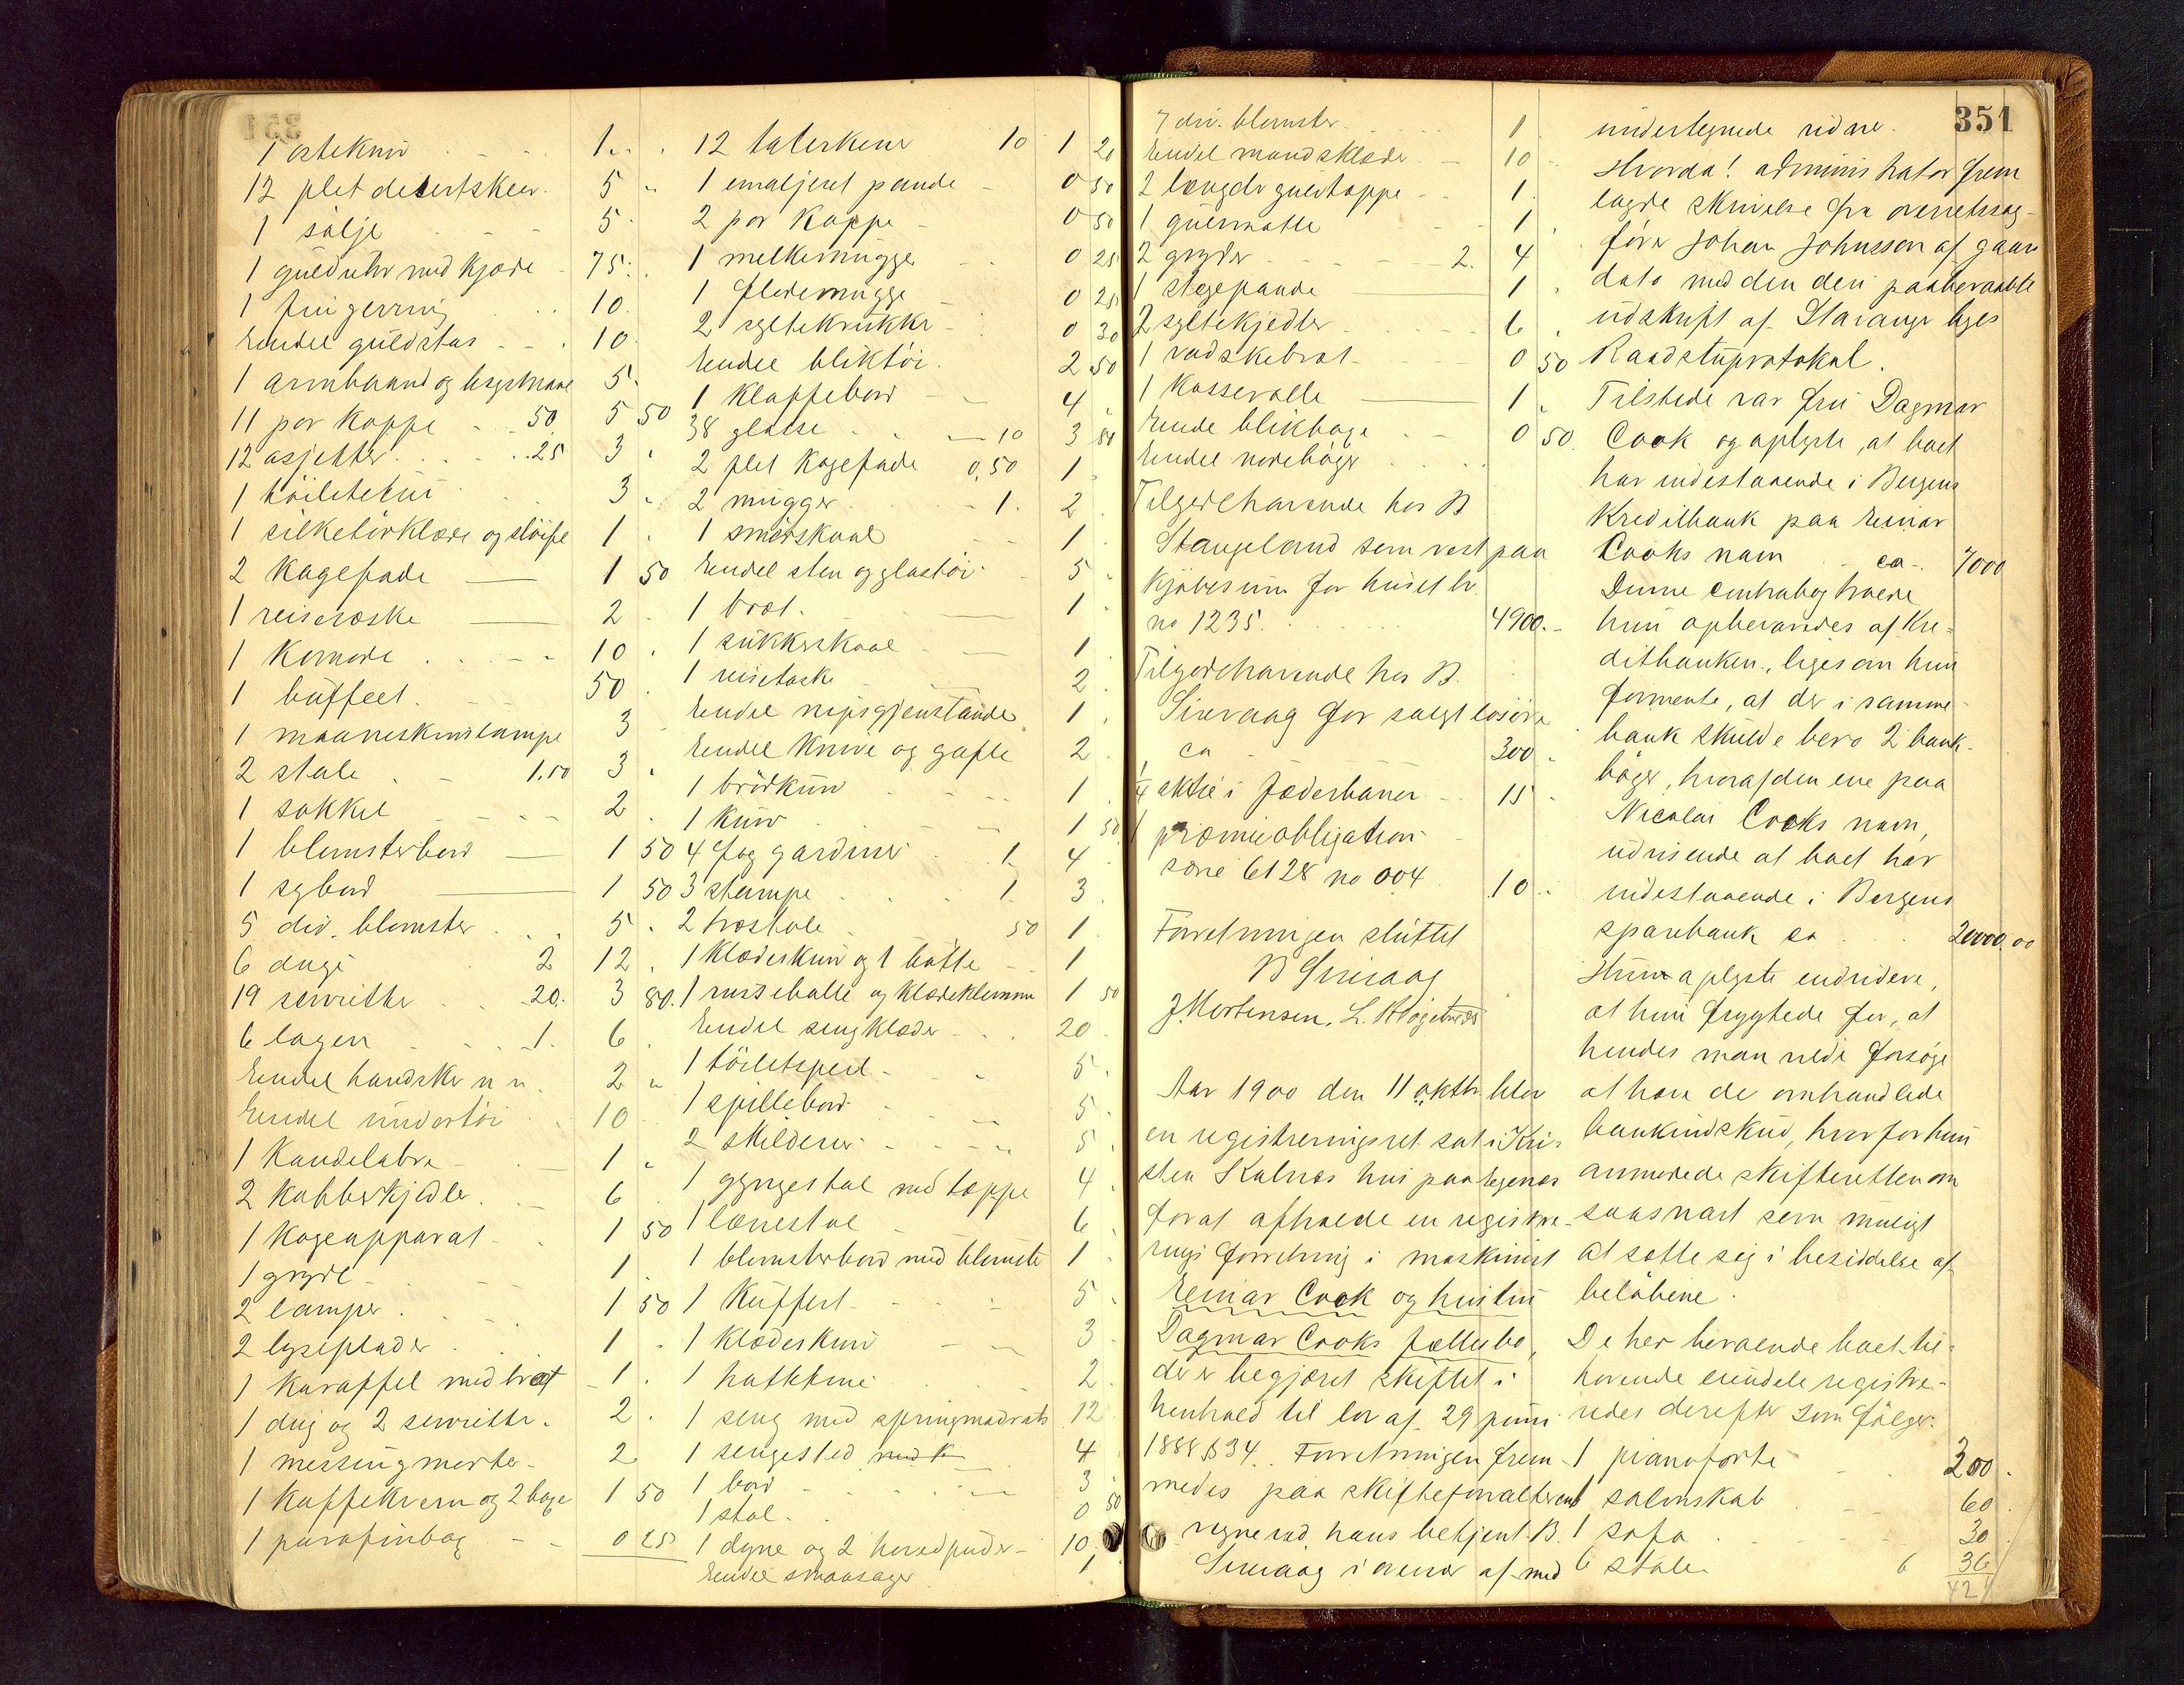 1 ostekniv 1 "
12 plet desertskeer 5 "
1 sølje 5
1 gulduhr med kjæde 75
1 fingerring 10
Endel guldstas 10
1 armbaand og brystnaal 5
11 par kopper 50 5 50
12 asjetter 25 3
1 toiletetui 3
1 silketørklæde og sløife 1
2 kagefade 1 50
1 reiseæske 2
1 komode 10
1 buffeet 50
1 maaneskinslampe 3
2 stole 1.50 3
1 sokkel 2
1 blomsterbord 1 50
1 sybord 1 50
5 div. blomster 5
6 duge 2 12
19 servietter 20 3 80
6 lagen 1 6
Endel handsker 2
Endel undertøi 10
1 Kandelabre 1
2 kobberkjedler 6
1 kogeapparat 1 50
1 gryde 1
2 lamper 1 50
2 lyseplader 1
1 karaffel med bræt 1
1 dug og 2 servietter 2
1 messingmorter 2
1 kaffekvern og 2 boxe 1 50
1 parafinbox 0 25
12 talerkener 10 1 20
1 emaljeret pande 0 50
2 par kopper 0 50
1 melkemugge 0 25
1 flødemugge 0 25
2 syltekrukker 0 30
Endel bliktøi 2 50
1 klappebord 4
38 glasse 10 3 80
2 plet kagefade 0,50 1
2 mugger 1 2
1 smørskaal 1
Endel sten og glastøi 5
1 bræt 1
1 sukkerskaal 1
1 reisetaske 2
Endel nipsgjenstande 1
Endel knive og gafle 2
1 brødkurv 1
1 kurv 1 50
4 fag gardiner 1 4
3 stampe 1 3
2 træstole 50 1
1 klædeskurv og 1 bøtte 1
1 rulleballe og klædeklemmer 1 50
Endel sengklæder 20
1 toiletspeil 5
1 spillebord 5
2 skilderier 5
1 gyngestol med tæppe 4
1 lænestol 6
1 blomsterbord med blomster 1
1 kuffert 5
1 klædeskurv 3
1 hatteetui 2
1 seng med springmadrats 12
1 sengested med k 4
1 bord 3
1 stol 0 50
1 dyne og 2 hovedpuder 10
Endel smaasager 1
351
7 div. blomster 1
Endel mandsklæder 10
2 længder gulvtæppe 1
1 gulvmatte 1
2 gryder 2 4
1 stegepande 1
2 syltekjedler 6
1 vadskebræt 0 50
1 kasserolle 1
Endel blikboxe 0 50
Endel nodebøger
Tilgodehavende hos B
Stangeland som rest paa
kjøbesum for huset br.
no 1235 4900
Tilgodehavende hos B.
Sirevaag for solgt løsøre
ca 300
1/4 aktie i Jæderbanen 15
1 præmieobligation
serie 6128 no 004 10
Forretningen sluttet
B Sirevaag
J. Mortensen. L. Klogetvedt
Aar 1900 den 11 oktbr blev
en registreringsret sat i Kri-
stea Kalnæs hus paa Egenæs
forat afholde en registre-
rings forretning i maskinist
Einar Cook og hustru
Dagmar Cooks fællesbo,
der er begjæret skiftet i
henhold til lov af 29 juni
1888 § 34. Forretningen frem-
medes paa skifteforvalterens
vegne ved hans betjent B.
Sirevaag i nærvær af med
undertegnede vidner.
Hvorda! administrator frem
lagde skrivelse fra overretssag-
fører Johan Johnsson af gaars
dato med den deri paaberaabte
udskrift af Stavanger byes
Raadstuprotokol.
Tilstede var fru Dagmar
Cook og oplyste, at boet
har indestaaende i Bergens
Kreditbank paa Einar
Cooks navn ca. 7000
Denne contrabog troede
hun opbevaredes af Kre-
ditbanken, ligesom hun
formente, at der i samme
bank skulde bero 2 bank-
bøger, hvoraf den ene paa
Nicolai Cooks navn,
udvisende at boet har
indestaaende i Bergens
sparebank ca 20000,00
Hun oplyste endvidere,
at hun frygtede for, at
hendes man vilde forsøge
at hæve de omhandlede
bankindskud, hvorfor hun
anmodede skifteretten om
saasnart som muligt
at sætte sig i besiddelse af
beløbene.
De her beroende boet til-
hørende eiendele registre-
redes derefter som følger:
1 pianoforte 300
1 salonskab 60
1 sofa 30
6 stole 6 36
426